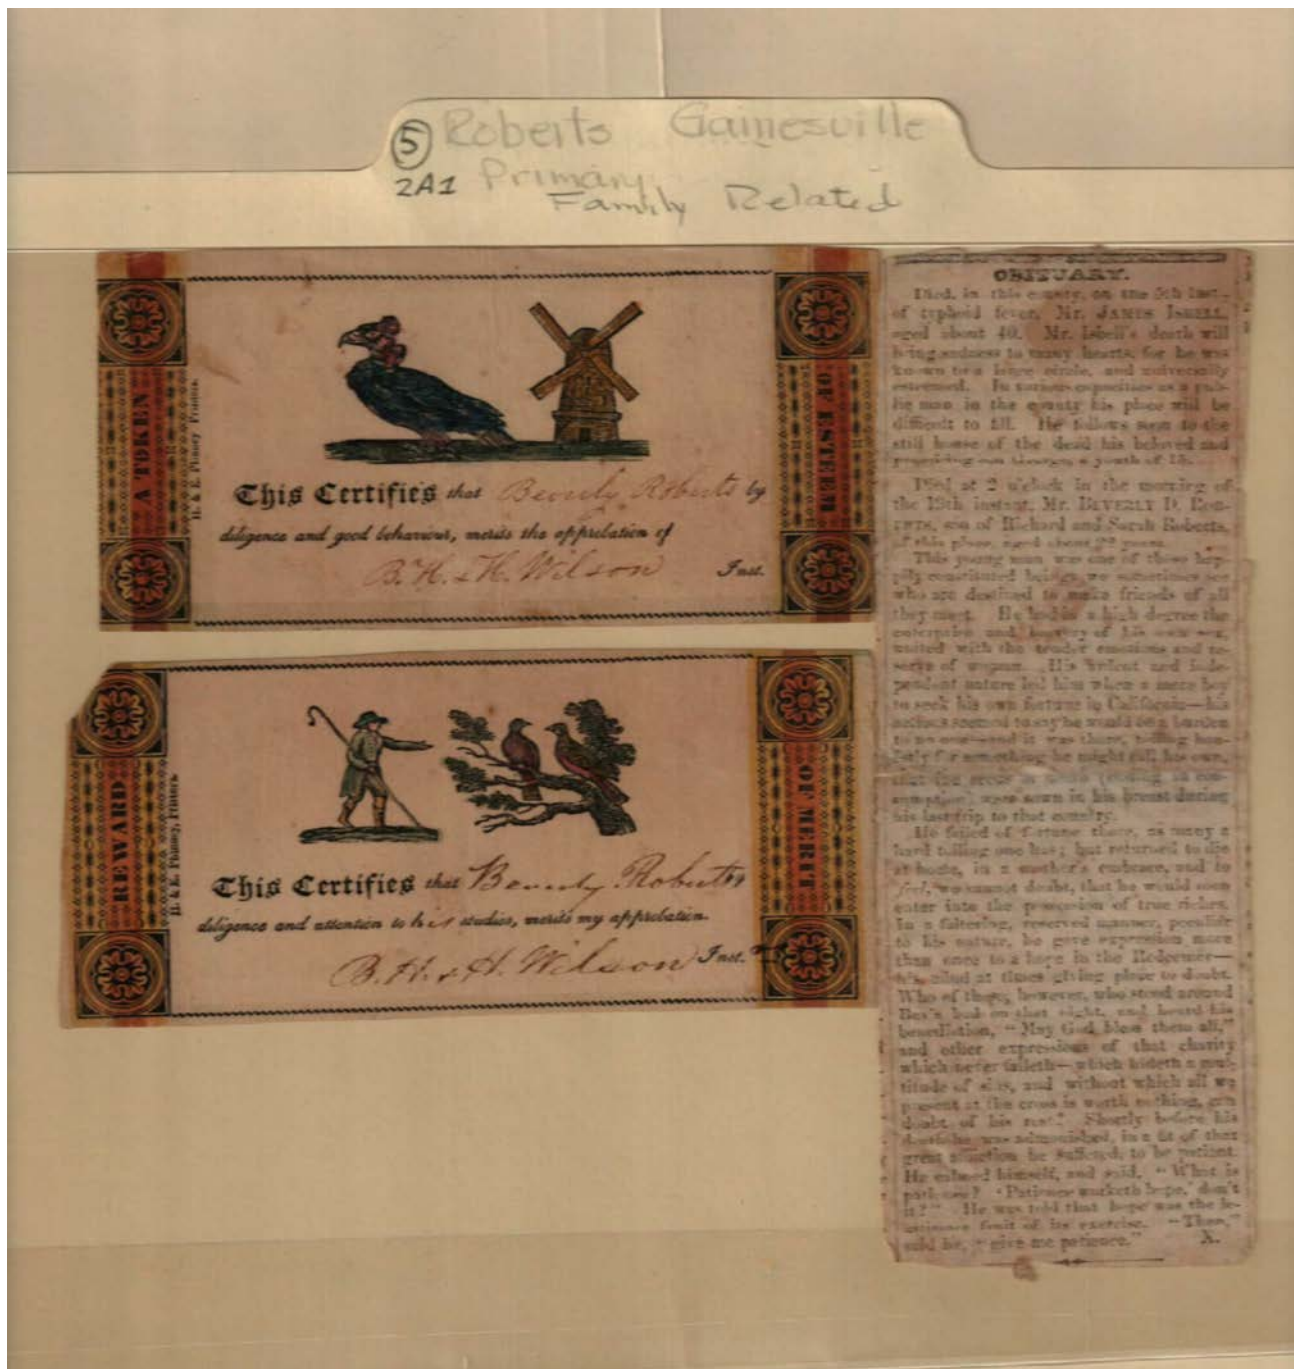 5 Roberts Gainesville
2A1 Primary
Family Related
A TOKEN
H. & E. Phinney Printers.
This Certifies that Beverly Roberts by
diligence and good behaviour, merits the approbation of
B. H. & H. Wilson Inst.
OF ESTEEM
REWARD
H. & E. Phinney, Printer.
This Certifies that Beverly Roberts by
diligence and attention to his studies, merits my approbation.
B. H. & H. Wilson Inst.
OF MERIT
OBITUARY.
Died, in this county, on the 5th inst.,
of typhoid fever, Mr. JAMES ISBELL,
aged about 40. Mr. Isbell's death will
bring sadness to many hearts, for he was
known to a large circle, and universally
esteemed. In various capacities as a pub-
lic man in the county his place will be
difficult to fill. He follows soon to the
still house of the dead his beloved and
promising son a youth of 15.
Died at 2 o'clock in the morning of
the 13th instant, Mr. BEVERLY D. ROB-
ERTS, son of Richard and Sarah Roberts,
of this place, aged about 22 years.
This young man was one of those hap-
pily constituted beings we sometimes see
who are destined to make friends of all
they meet. He had in a high degree the
enterprise and bravery of his own sex,
united with the tender emotions and re-
serve of woman. His ardent and inde-
pendent nature led him when a mere boy
to seek his own fortune in California—his
actions seemed to say he would be a burden
to no one—and it was there, toiling hon-
estly for something he might call his own,
that the seeds of death (ending in con-
sumption) were sown in his breast during
his last trip to that country.
He failed of fortune there, as many a
hard toiling one has; but returned to die
at home, in a mother's embrace, and to
feel, we cannot doubt, that he would soon
enter into the possession of true riches.
In a faltering, reserved manner, peculiar
to his nature, he gave expression more
than once to a hope in the Redeemer—
his mind at times giving place to doubt.
Who of those, however, who stood around
Bev's bed on that night, and heard his
benediction, "May God bless them all,"
and other expressions of that charity
which never faileth—which hideth a mul-
titude of sins, and without which all we
present at the cross is worth nothing, can
doubt of his rest? Shortly before his
death he was admonished, in a fit of that
great affliction he suffered, to be patient.
He calmed himself, and said, "What is
patience? 'Patience worketh hope,' don't
it?" He was told that hope was the le-
gitimate fruit of its exercise. "Then,"
said he, "give me patience." X.